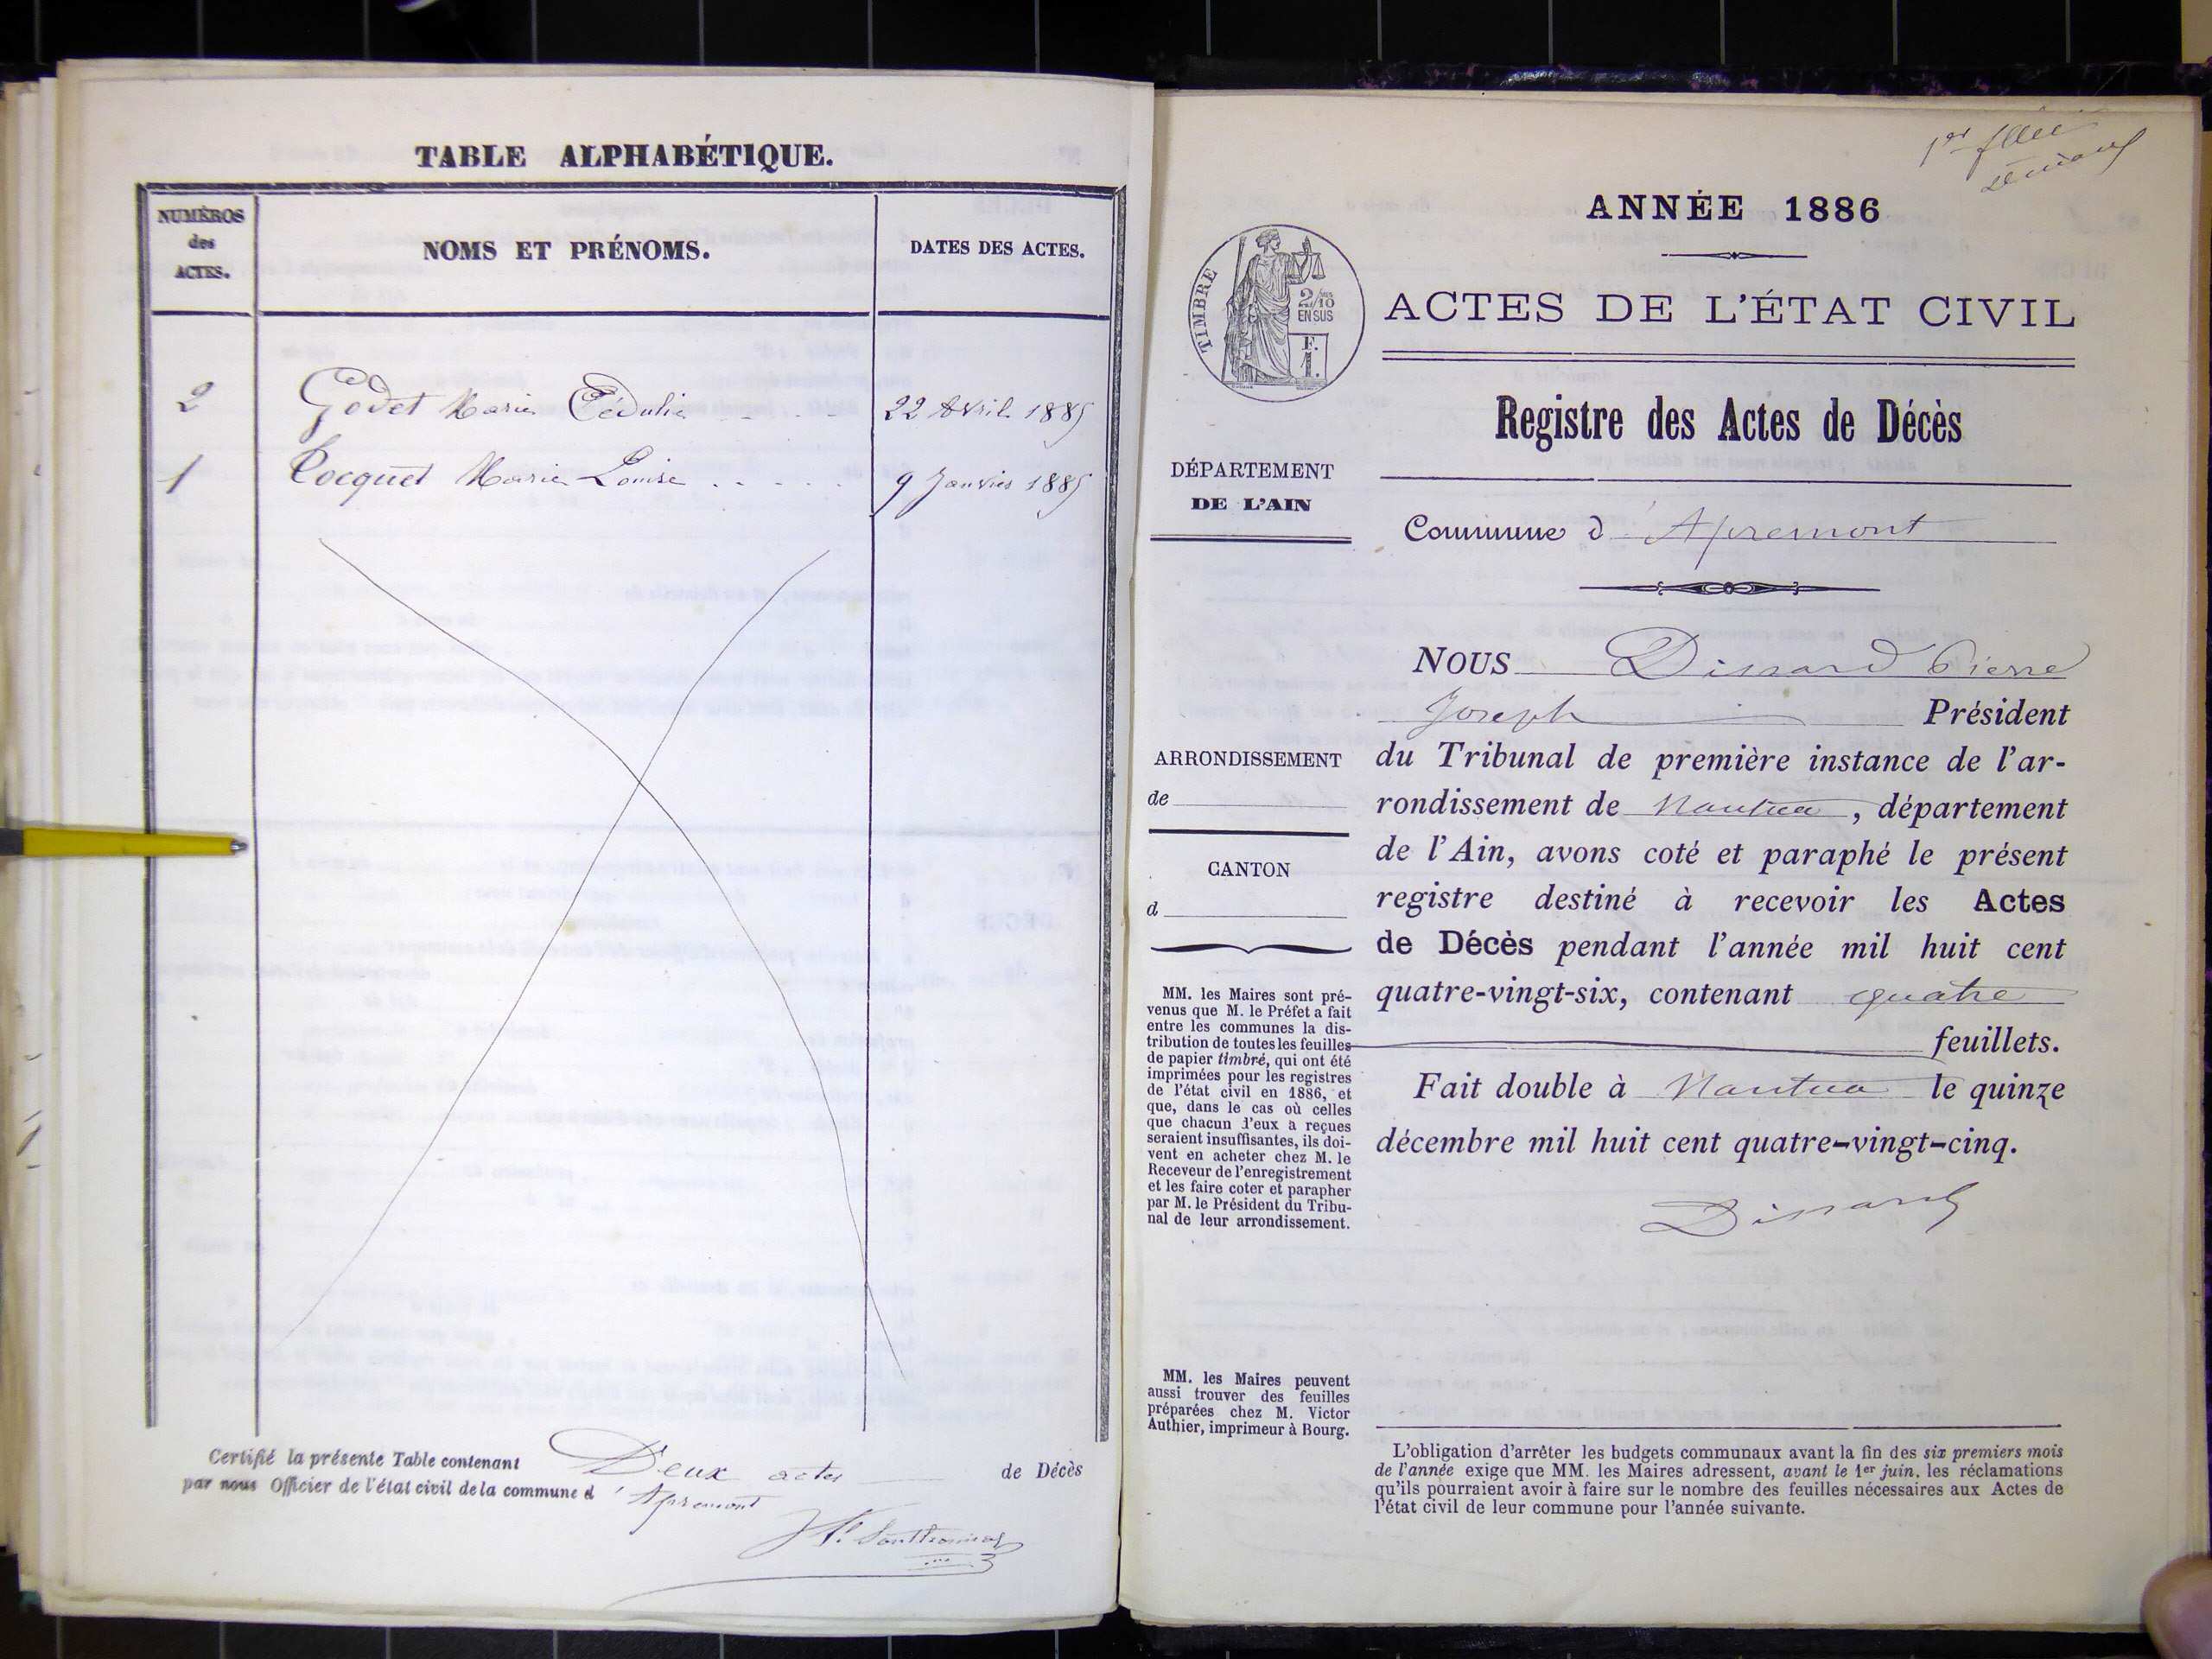 TABLE ALPHABÉTIQUE.
NUMÉROS
des
ACTES.
NOMS ET PRÉNOMS.
DATES DES ACTES.
2 Godet Marie 22 Avril 1885
1 Pocquet Marie Louise 9 Janvier 1885
Certifié la présente Table contenant Deux actes de Décès
par nous Officier de l'état civil de la commune d'Apremont
1er
ANNÉE 1886
TIMBRE
2/10
EN SUS
F.
1.
ACTES DE L'ÉTAT CIVIL
Registre des Actes de Décès
DÉPARTEMENT
DE L'AIN
Commune d'Apremont
NOUS Dissard Pierre
Joseph Président
du Tribunal de première instance de l'ar-
rondissement de Nantua, département
de l'Ain, avons coté et paraphé le présent
registre destiné à recevoir les Actes
de Décès pendant l'année mil huit cent
quatre-vingt-six, contenant quatre
feuillets.
Fait double à Nantua le quinze
décembre mil huit cent quatre-vingt-cinq.
Dissard
ARRONDISSEMENT
de
CANTON
d
MM. les Maires sont pré-
venus que M. le Préfet a fait
entre les communes la dis-
tribution de toutes les feuilles
de papier timbré, qui ont été
imprimées pour les registres
de l'état civil en 1886, et
que, dans le cas où celles
que chacun d'eux a reçues
seraient insuffisantes, ils doi-
vent en acheter chez M. le
Receveur de l'enregistrement
et les faire coter et parapher
par M. le Président du Tribu-
nal de leur arrondissement.
MM. les Maires peuvent
aussi trouver des feuilles
préparées chez M. Victor
Authier, imprimeur à Bourg.
L'obligation d'arrêter les budgets communaux avant la fin des six premiers mois
de l'année exige que MM. les Maires adressent, avant le 1er juin, les réclamations
qu'ils pourraient avoir à faire sur le nombre des feuilles nécessaires aux Actes de
l'état civil de leur commune pour l'année suivante.